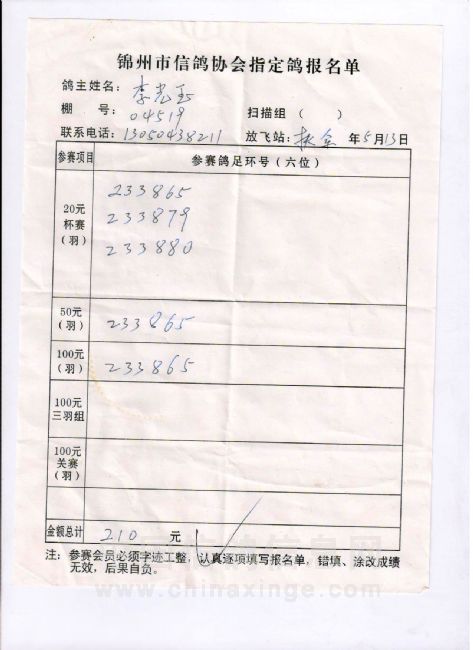 锦州市信鸽协会指定鸽报名单
鸽主姓名：李光玉
棚 号：04519 扫描组 （ ）
联系电话：13050438211 放飞站： 年5月13日
参赛项目 参赛鸽足环号（六位）
20元
杯赛
（羽）
233865
233879
233880
50元
（羽）
233865
100元
（羽）
233865
100元
三羽组
100元
关赛
（羽）
金额总计 210 元
注：参赛会员必须字迹工整，认真逐项填写报名单，错填、涂改成绩
无效，后果自负。
www.chinaxinge.com